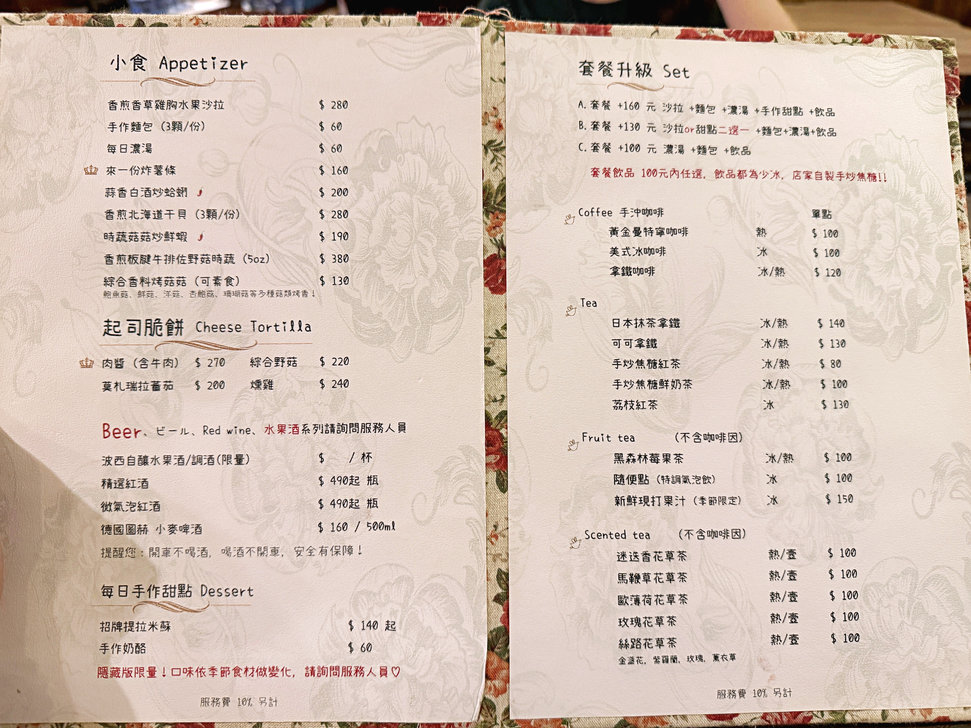 小食 Appetizer
香煎香草雞胸水果沙拉 $ 280
手作麵包 (3顆/份) $ 60
每日濃湯 $ 60
來一份炸薯條 $ 160
蒜香白酒炒蛤蜊 $ 200
香煎北海道干貝 (3顆/份) $ 280
時蔬菇菇炒鮮蝦 $ 190
香煎板腱牛排佐野菇時蔬 (5oz) $ 380
綜合香料烤菇菇 (可素食) $ 130
鮑魚菇、鮮菇、洋菇、杏鮑菇、珊瑚菇等多種菇類烤香!
起司脆餅 Cheese Tortilla
肉醬 (含牛肉) $ 270 綜合野菇 $ 220
莫札瑞拉蕃茄 $ 200 燻雞 $ 240
Beer、ビール、Red wine、水果酒系列請詢問服務人員
波西自釀水果酒/調酒(限量) $ / 杯
精選紅酒 $ 490起 瓶
微氣泡紅酒 $ 490起 瓶
德國圖赫 小麥啤酒 $ 160 / 500ml
提醒您：開車不喝酒, 喝酒不開車, 安全有保障!
每日手作甜點 Dessert
招牌提拉米蘇 $ 140 起
手作奶酪 $ 60
隱藏版限量!口味依季節食材做變化, 請詢問服務人員♡
服務費 10% 另計
套餐升級 Set
A.套餐 +160 元 沙拉 +麵包 +濃湯 +手作甜點 +飲品
B.套餐 +130 元 沙拉or甜點二選一 +麵包+濃湯+飲品
C.套餐 +100 元 濃湯 +麵包 +飲品
套餐飲品 100元內任選, 飲品都為少冰, 店家自製手炒焦糖!!
Coffee 手沖咖啡 單點
黃金曼特寧咖啡 熱 $ 100
美式冰咖啡 冰 $ 100
拿鐵咖啡 冰/熱 $ 120
Tea
日本抹茶拿鐵 冰/熱 $ 140
可可拿鐵 冰/熱 $ 130
手炒焦糖紅茶 冰/熱 $ 80
手炒焦糖鮮奶茶 冰/熱 $ 100
荔枝紅茶 冰 $ 130
Fruit tea (不含咖啡因)
黑森林莓果茶 冰/熱 $ 100
隨便點 (特調氣泡飲) 冰 $ 100
新鮮現打果汁 (季節限定) 冰 $ 150
Scented tea (不含咖啡因)
迷迭香花草茶 熱/壺 $ 100
馬鞭草花草茶 熱/壺 $ 100
歐薄荷花草茶 熱/壺 $ 100
玫瑰花草茶 熱/壺 $ 100
絲路花草茶 熱/壺 $ 100
金盞花, 紫羅蘭, 玫瑰, 薰衣草
服務費 10% 另計